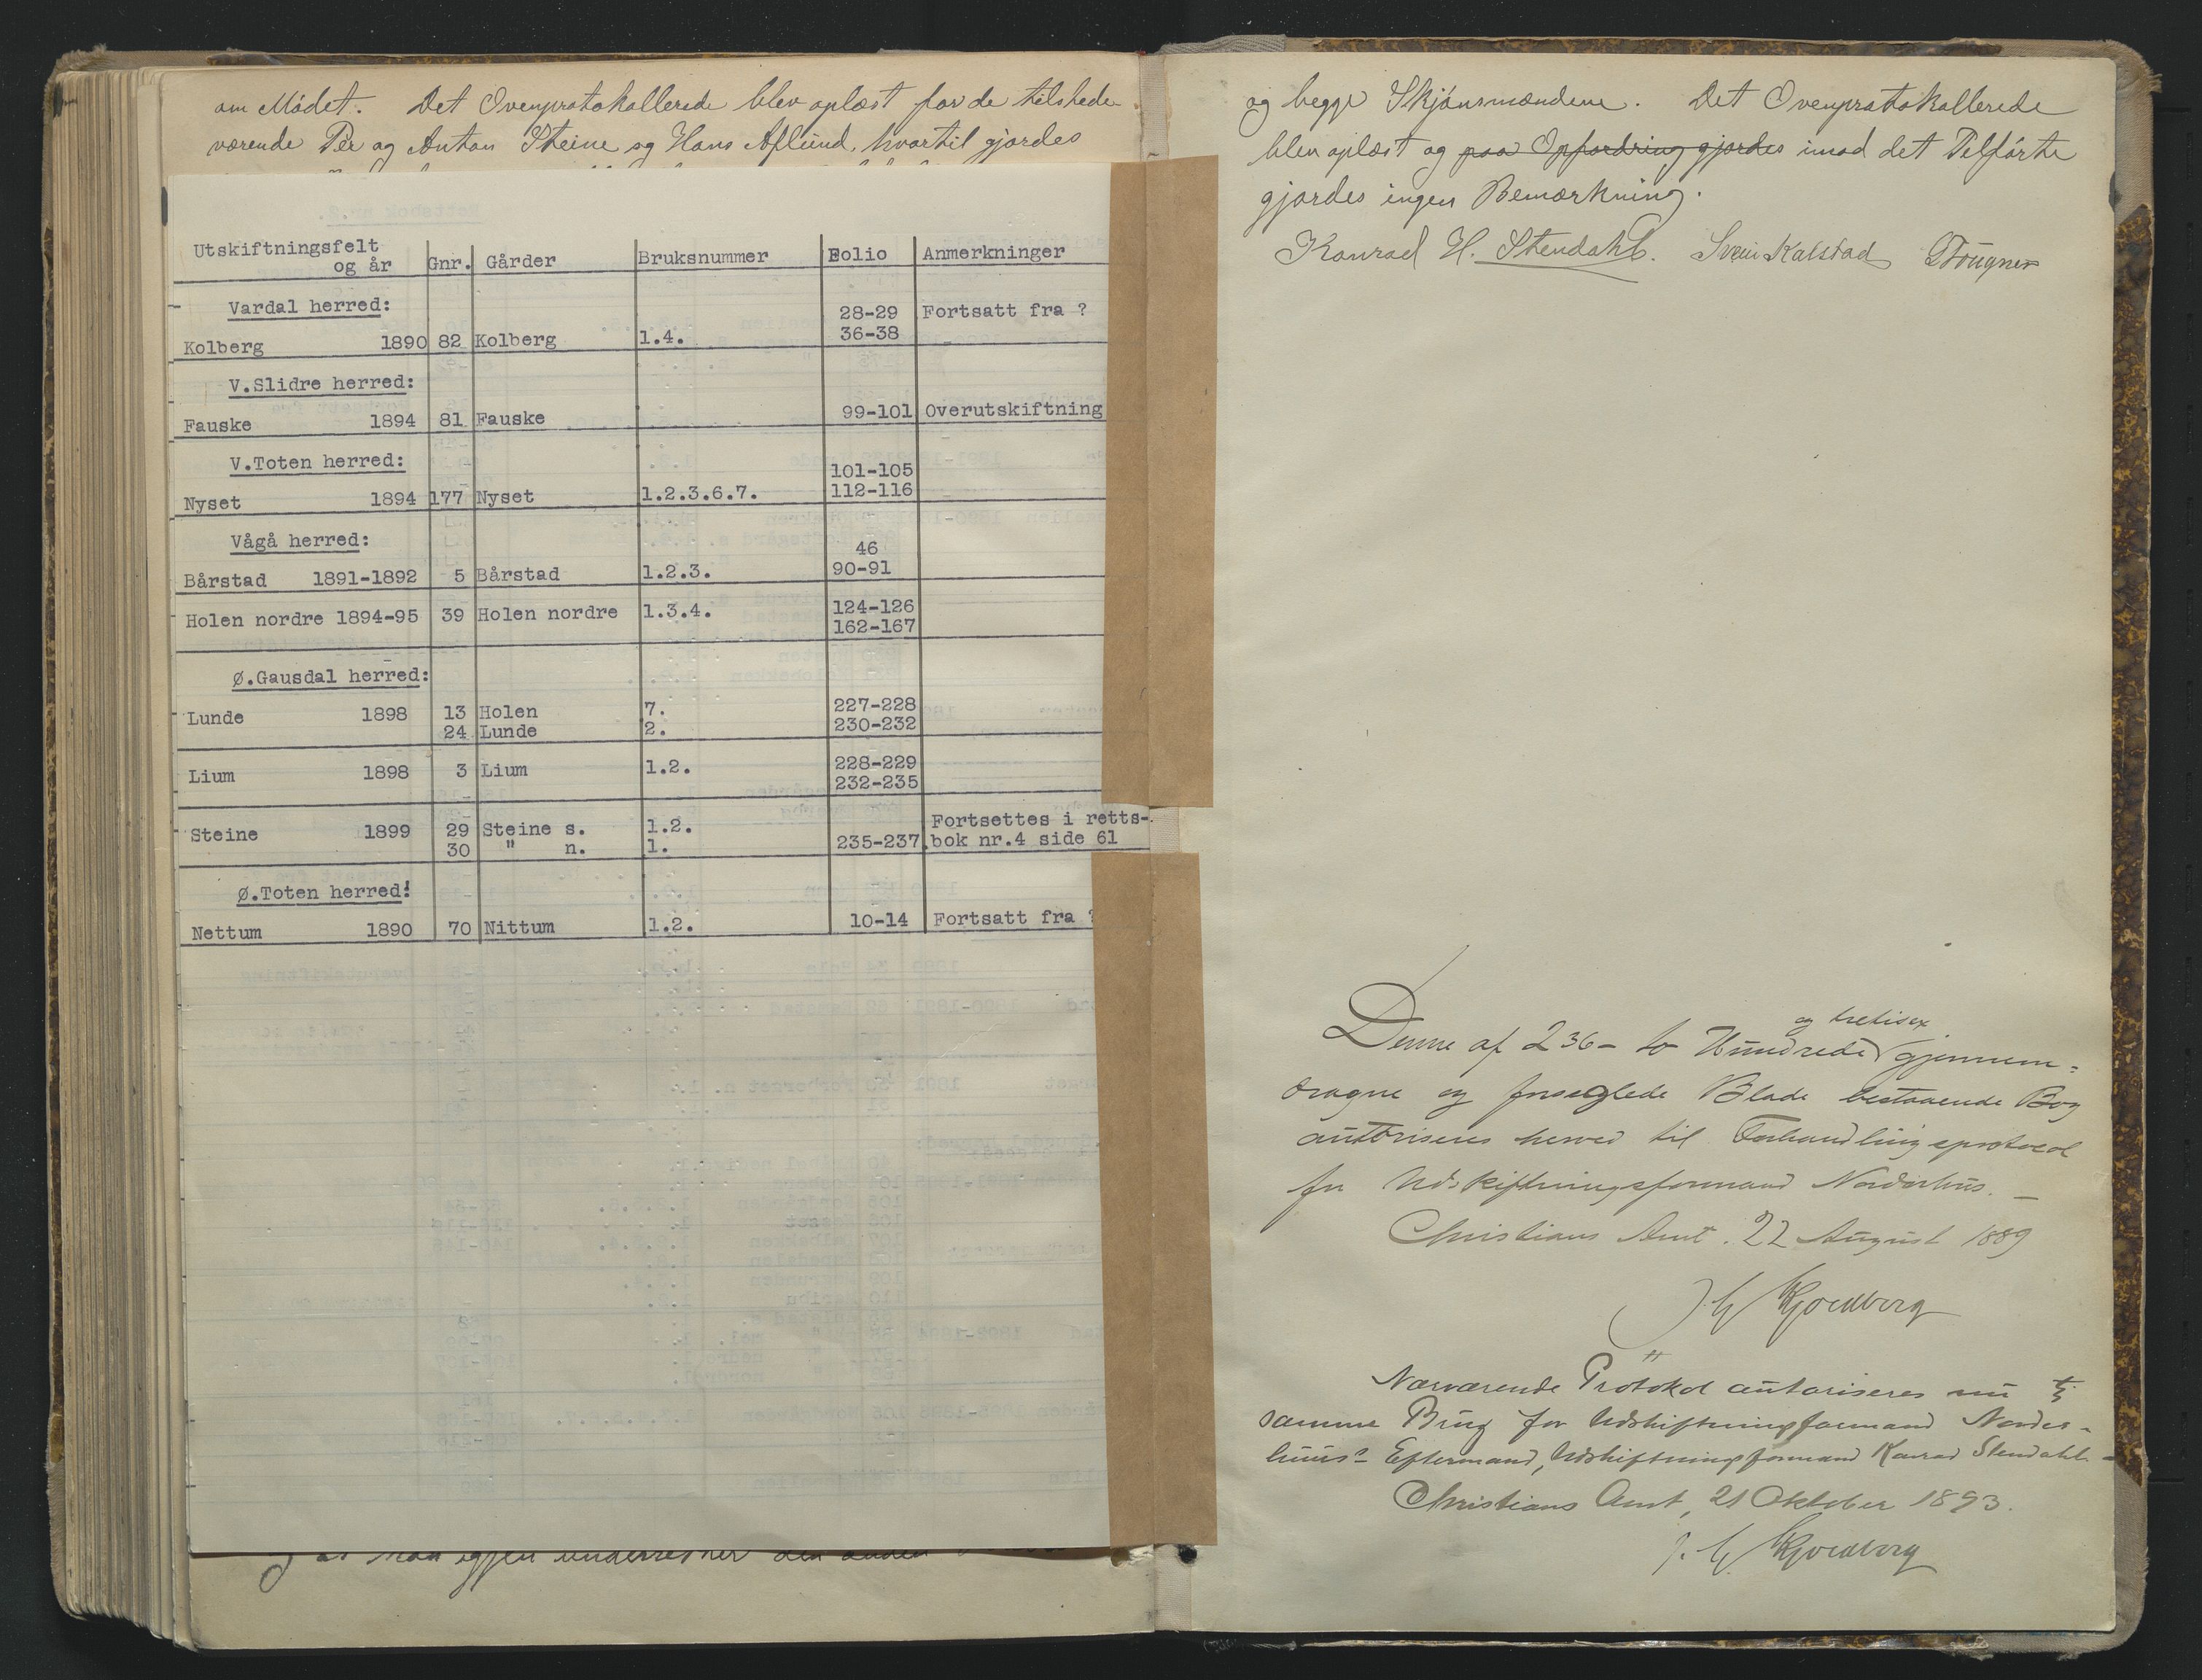 om Mødet. Det Ovenprotokollerede blev oplæst for de tilstede-
værende Per og Anton Steine og Hans Aflund, hvortil gjordes
Utskiftningsfelt og år | Gnr. | Gårder | Bruksnummer | Folio | Anmerkninger
Vardal herred:
28-29 Fortsatt fra ?
Kolberg 1890 82 Kolberg 1.4. 36-38
V.Slidre herred:
Fauske 1894 81 Fauske 99-101 Overutskiftning
V.Toten herred:
101-105
Nyset 1894 177 Nyset 1.2.3.6.7. 112-116
Vågå herred:
46
Bårstad 1891-1892 5 Bårstad 1.2.3. 90-91
Holen nordre 1894-95 39 Holen nordre 1.3.4. 124-126
162-167
Ø.Gausdal herred:
Lunde 1898 13 Holen 7. 227-228
24 Lunde 2. 230-232
Lium 1898 3 Lium 1.2. 228-229
232-235
Steine 1899 29 Steine s. 1.2. Fortsettes i retts-
30 " n. 1. 235-237 bok nr.4 side 61
Ø.Toten herred:
Nettum 1890 70 Nittum 1.2. 10-14 Fortsatt fra ?
underretter den anden
og begge Skjønsmændene. Det Ovenprotokollerede
blev oplæst og paa Opfordring gjordes imod det Tilførte
gjordes ingen Bemærkning.
Konrad H. Stendahl. Svein Kalstad
og tretisex
Denne af 236 - to Hundrede gjennem-
dragne og forseglede Blade bestaaende Bog
autoriseres herved til Forhandlingsprotocol
for Udskiftningsformand Norderhus. -
Christians Amt. 22 August 1889
Nærværende Protokol autoriseres nu til
samme Brug for Udskiftningsformand Norder-
huus's Eftermand, Udskiftningsformand Konrad Stendahl. -
Christians Amt, 21 Oktober 1893.